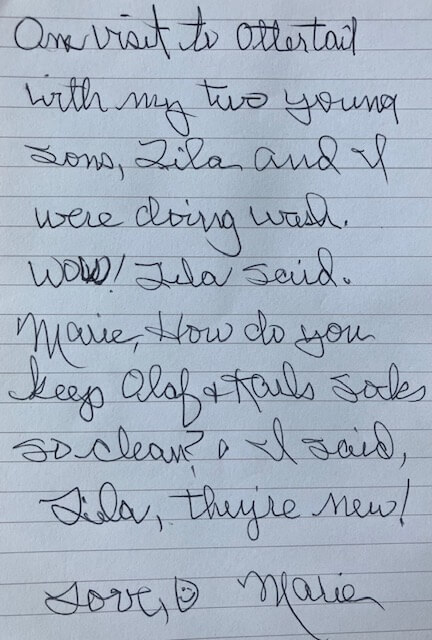 One visit to Ottertail
with my two young
sons, Lila and I
were doing wash.
WOW! Lila said.
Marie, How do you
keep Olaf & Karls socks
so clean? I said,
Lila, they're new!
Love, Marie